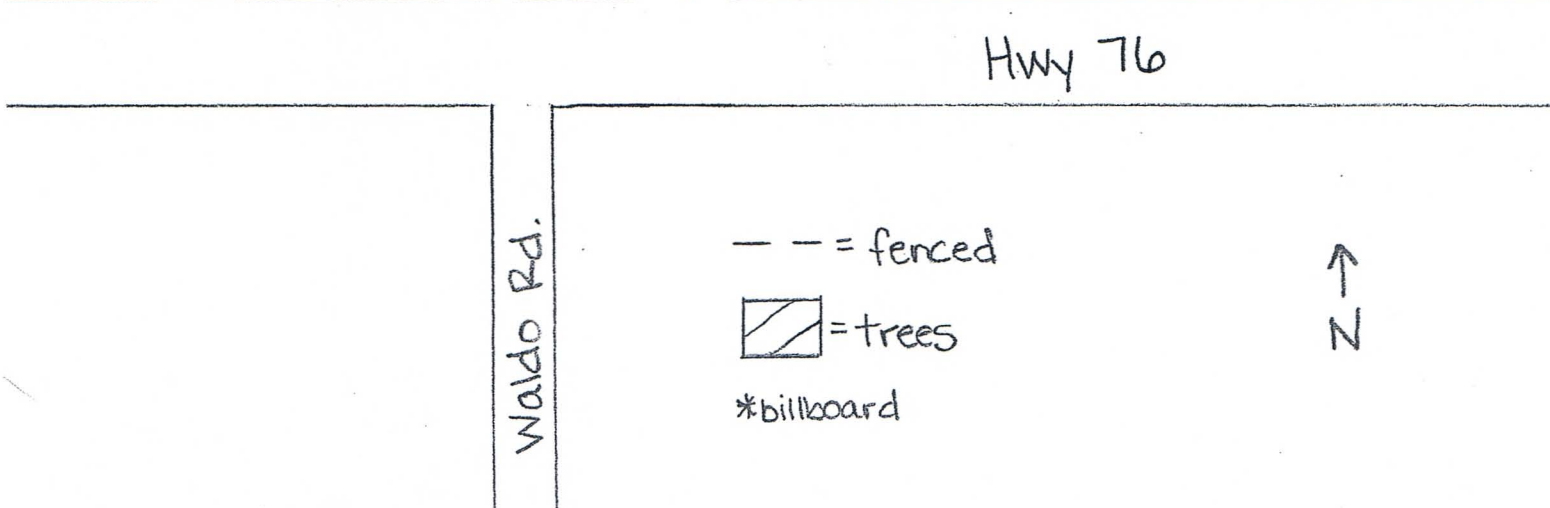 Hwy 76
Waldo Rd.
— — = fenced
= trees
*billboard
N